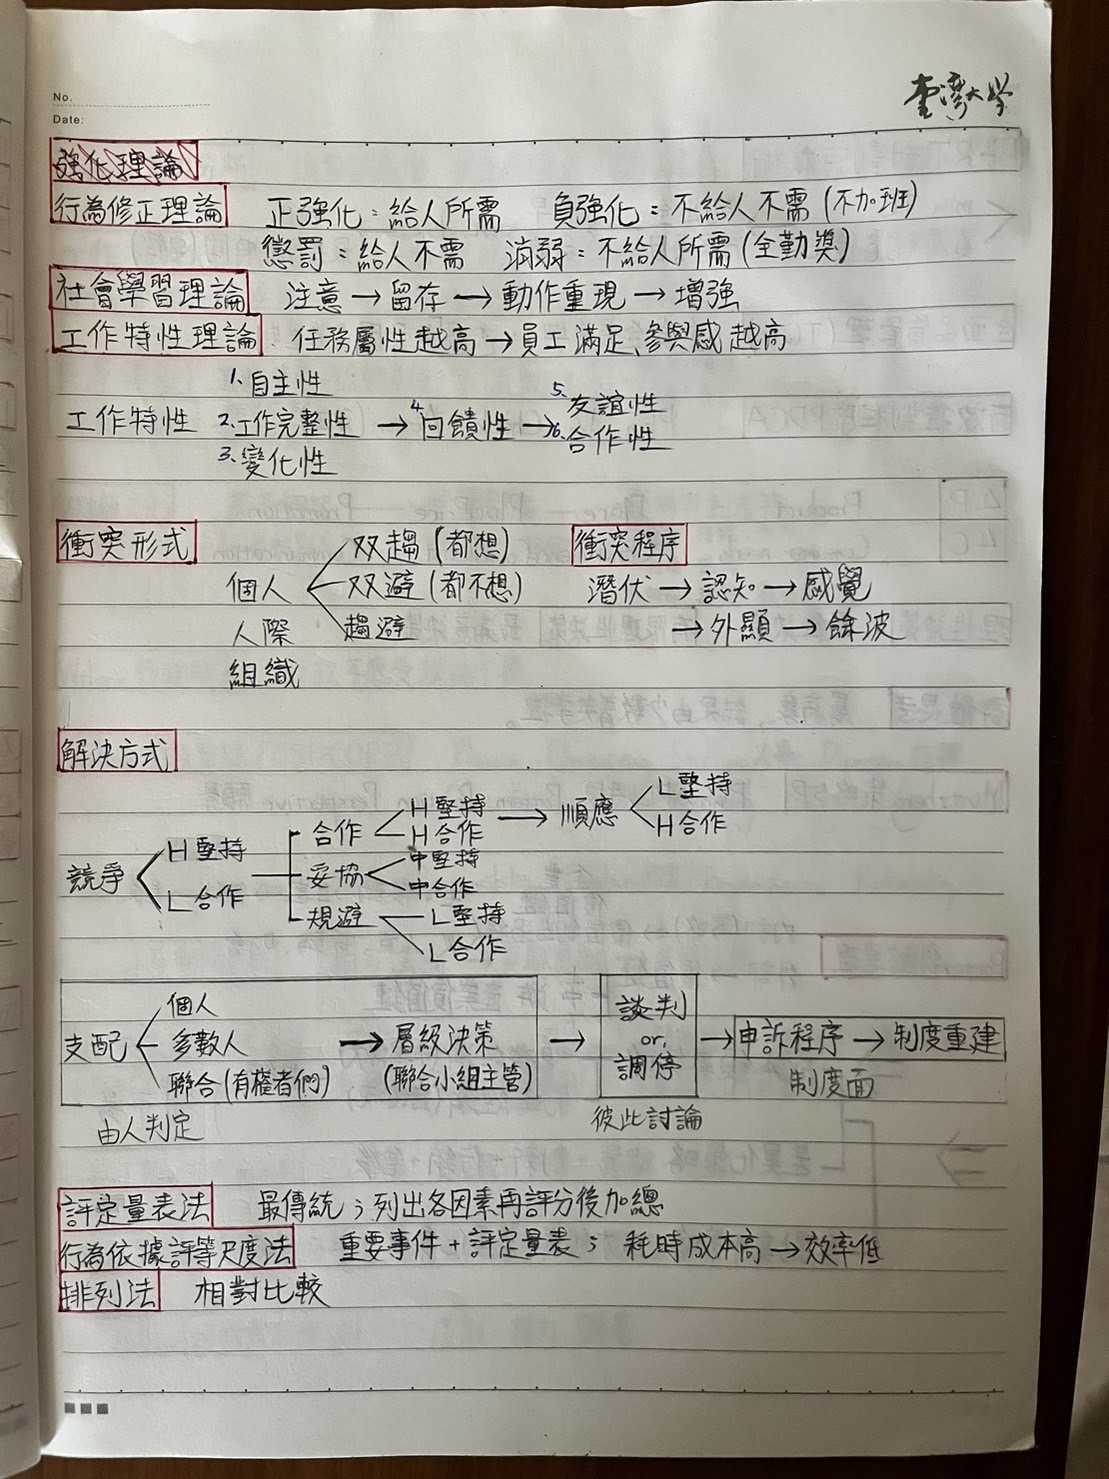 No.
Date:
臺灣大學
強化理論
行為修正理論 正強化：給人所需 負強化：不給人不需(不加班)
懲罰：給人不需 消弱：不給人所需(全勤獎)
社會學習理論 注意→留存→動作重現→增強
工作特性理論 任務屬性越高→員工滿足、參與感越高
1、自主性
工作特性 2、工作完整性→4、回饋性→5、友誼性
6、合作性
3、變化性
衝突形式 双趨(都想) 衝突程序
個人 双避(都不想) 潛伏→認知→感覺
人際 趨避 →外顯→餘波
組織
解決方式
合作 H堅持 H合作 → 順應 L堅持 H合作
競爭 H堅持 L合作 妥協 中堅持 中合作
規避 L堅持 L合作
個人
支配 多數人 → 層級決策 → 談判 or, 調停 → 申訴程序 → 制度重建
聯合(有權者們) (聯合小組主管) 制度面
由人判定 彼此討論
評定量表法 最傳統；列出各因素再評分後加總
行為依據評等尺度法 重要事件+評定量表；耗時成本高→效率低
排列法 相對比較